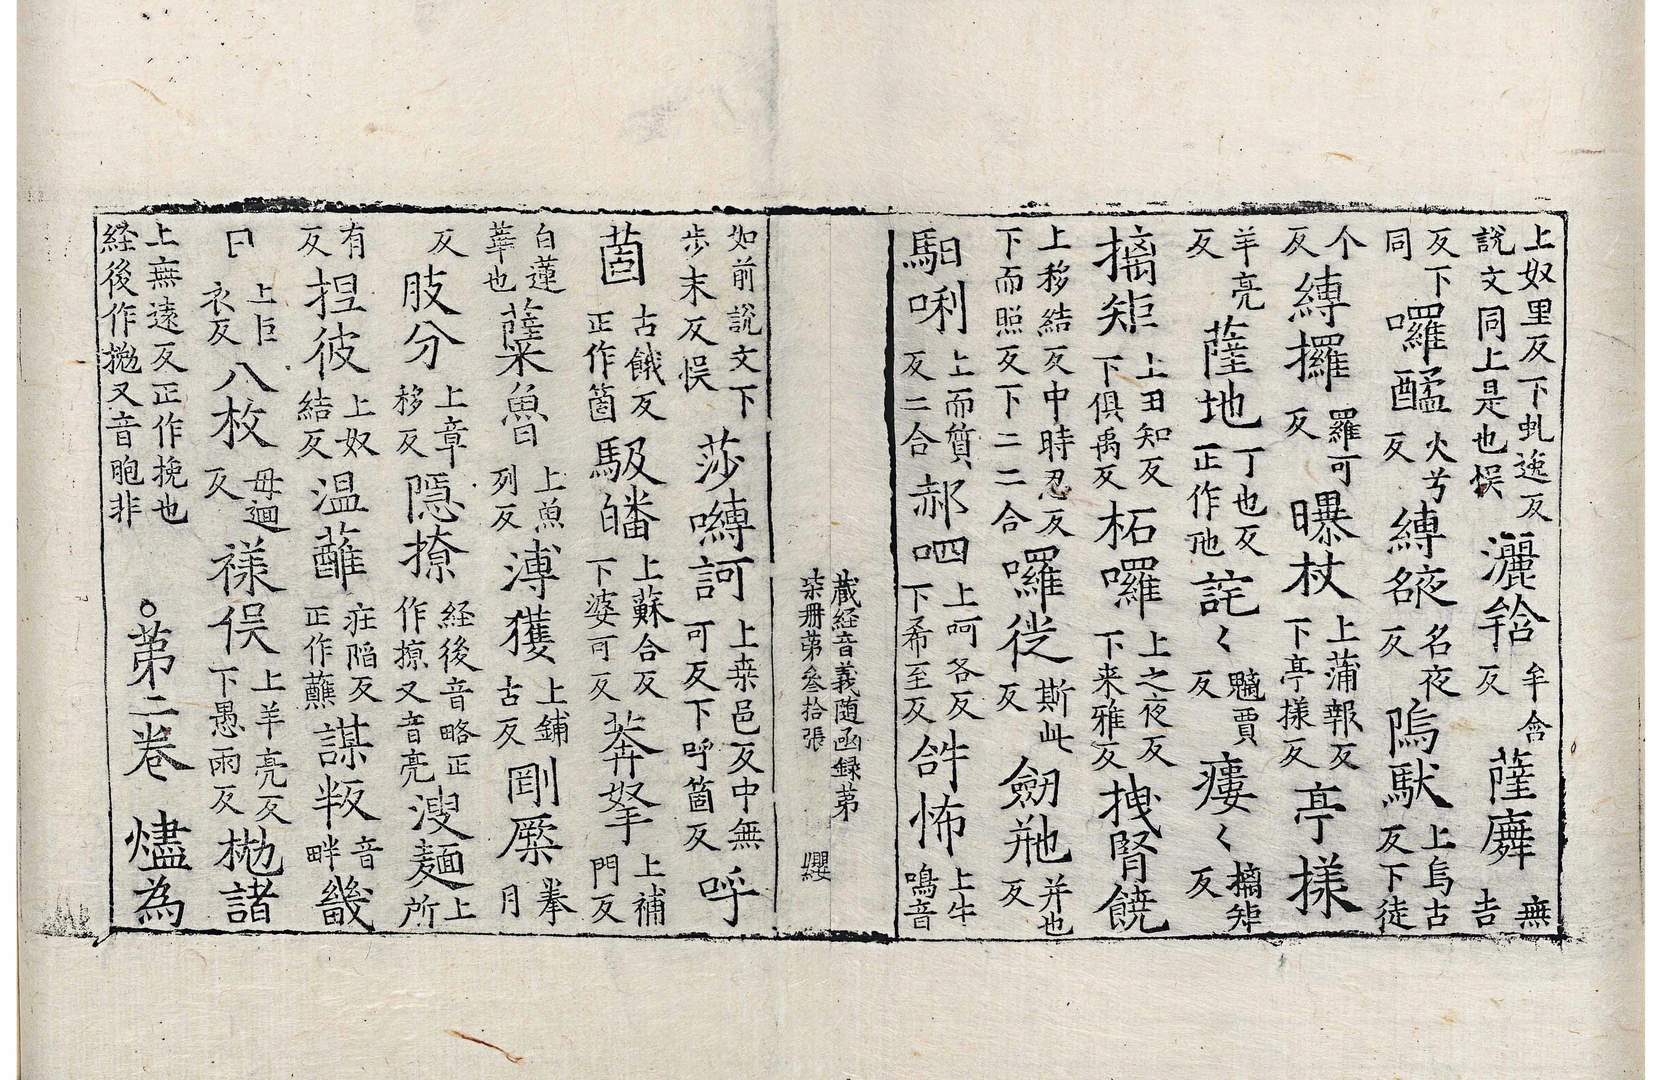 上奴里反下虬逸反說文同上是也悮灑䶎牟含反薩䴢無吉
反下同囉醘火兮反縛𡖍名夜反隖䭾上烏古反下徒
个反縛攞羅可反曝杖上蒲報反下亭様反亭様
羊亮反薩地丁也反正作䶊詫〻魑賈反㾤〻摘矩反
摛矩上丑知反下俱禹反柘囉上之夜反下来雅反拽腎饒
上移結反中時忍反下而照反下二二合囉徙斯此反劒𦨻并也反
馹唎上而質反二合郝呬上呵各反下希至反𠲶怖上牛鳴音
藏経音義随函録第柒册第叄拾張 纓
如前說文下歩末反悮莎嚩訶上桒邑反中無可反下呼箇反呼
箘古餓反正作箇馺皤上蘇合反下婆可反莽拏上補門反
白蓮華也蘃魯日上魚列反溥獲上鋪古反剛厥拳月
反肢分上章移反隱撩経後音略正作撩又音亮溲麵上所
有反揑彼上奴結反温蘸疘陷反正作蘸謀叛音畔畿
曰上巨衣反八枚毋迴反樣俣上羊亮反下愚雨反抛諸
上無逺反正作挽也経後作抛又音胞非 ○第二巻 燼為